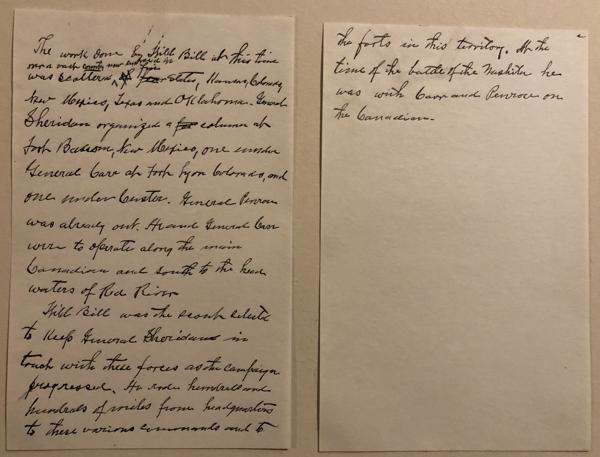 The work done by Will Bill at this time
over a vast country now embraced in
was scattered, five states, Kansas, Colorado,
New Mexico, Texas and Oklahoma. General
Sheridan organized a column at
Fort Bascom, New Mexico, one under
General Carr at Fort Lyon Colorado, and
one under Custer. General Penrose
was already out. He and General Carr
were to operate along the main
Canadian and south to the head
waters of Red River
Will Bill was the scout selected
to Keep General Sheridan in
touch with these forces as the campaign
progressed. He rode hundreds and
hundreds of miles from headquarters
to these various commands and to
2
the forts in this territory. At the
time of the battle of the Washita he
was with Carr and Penrose on
the Canadian.